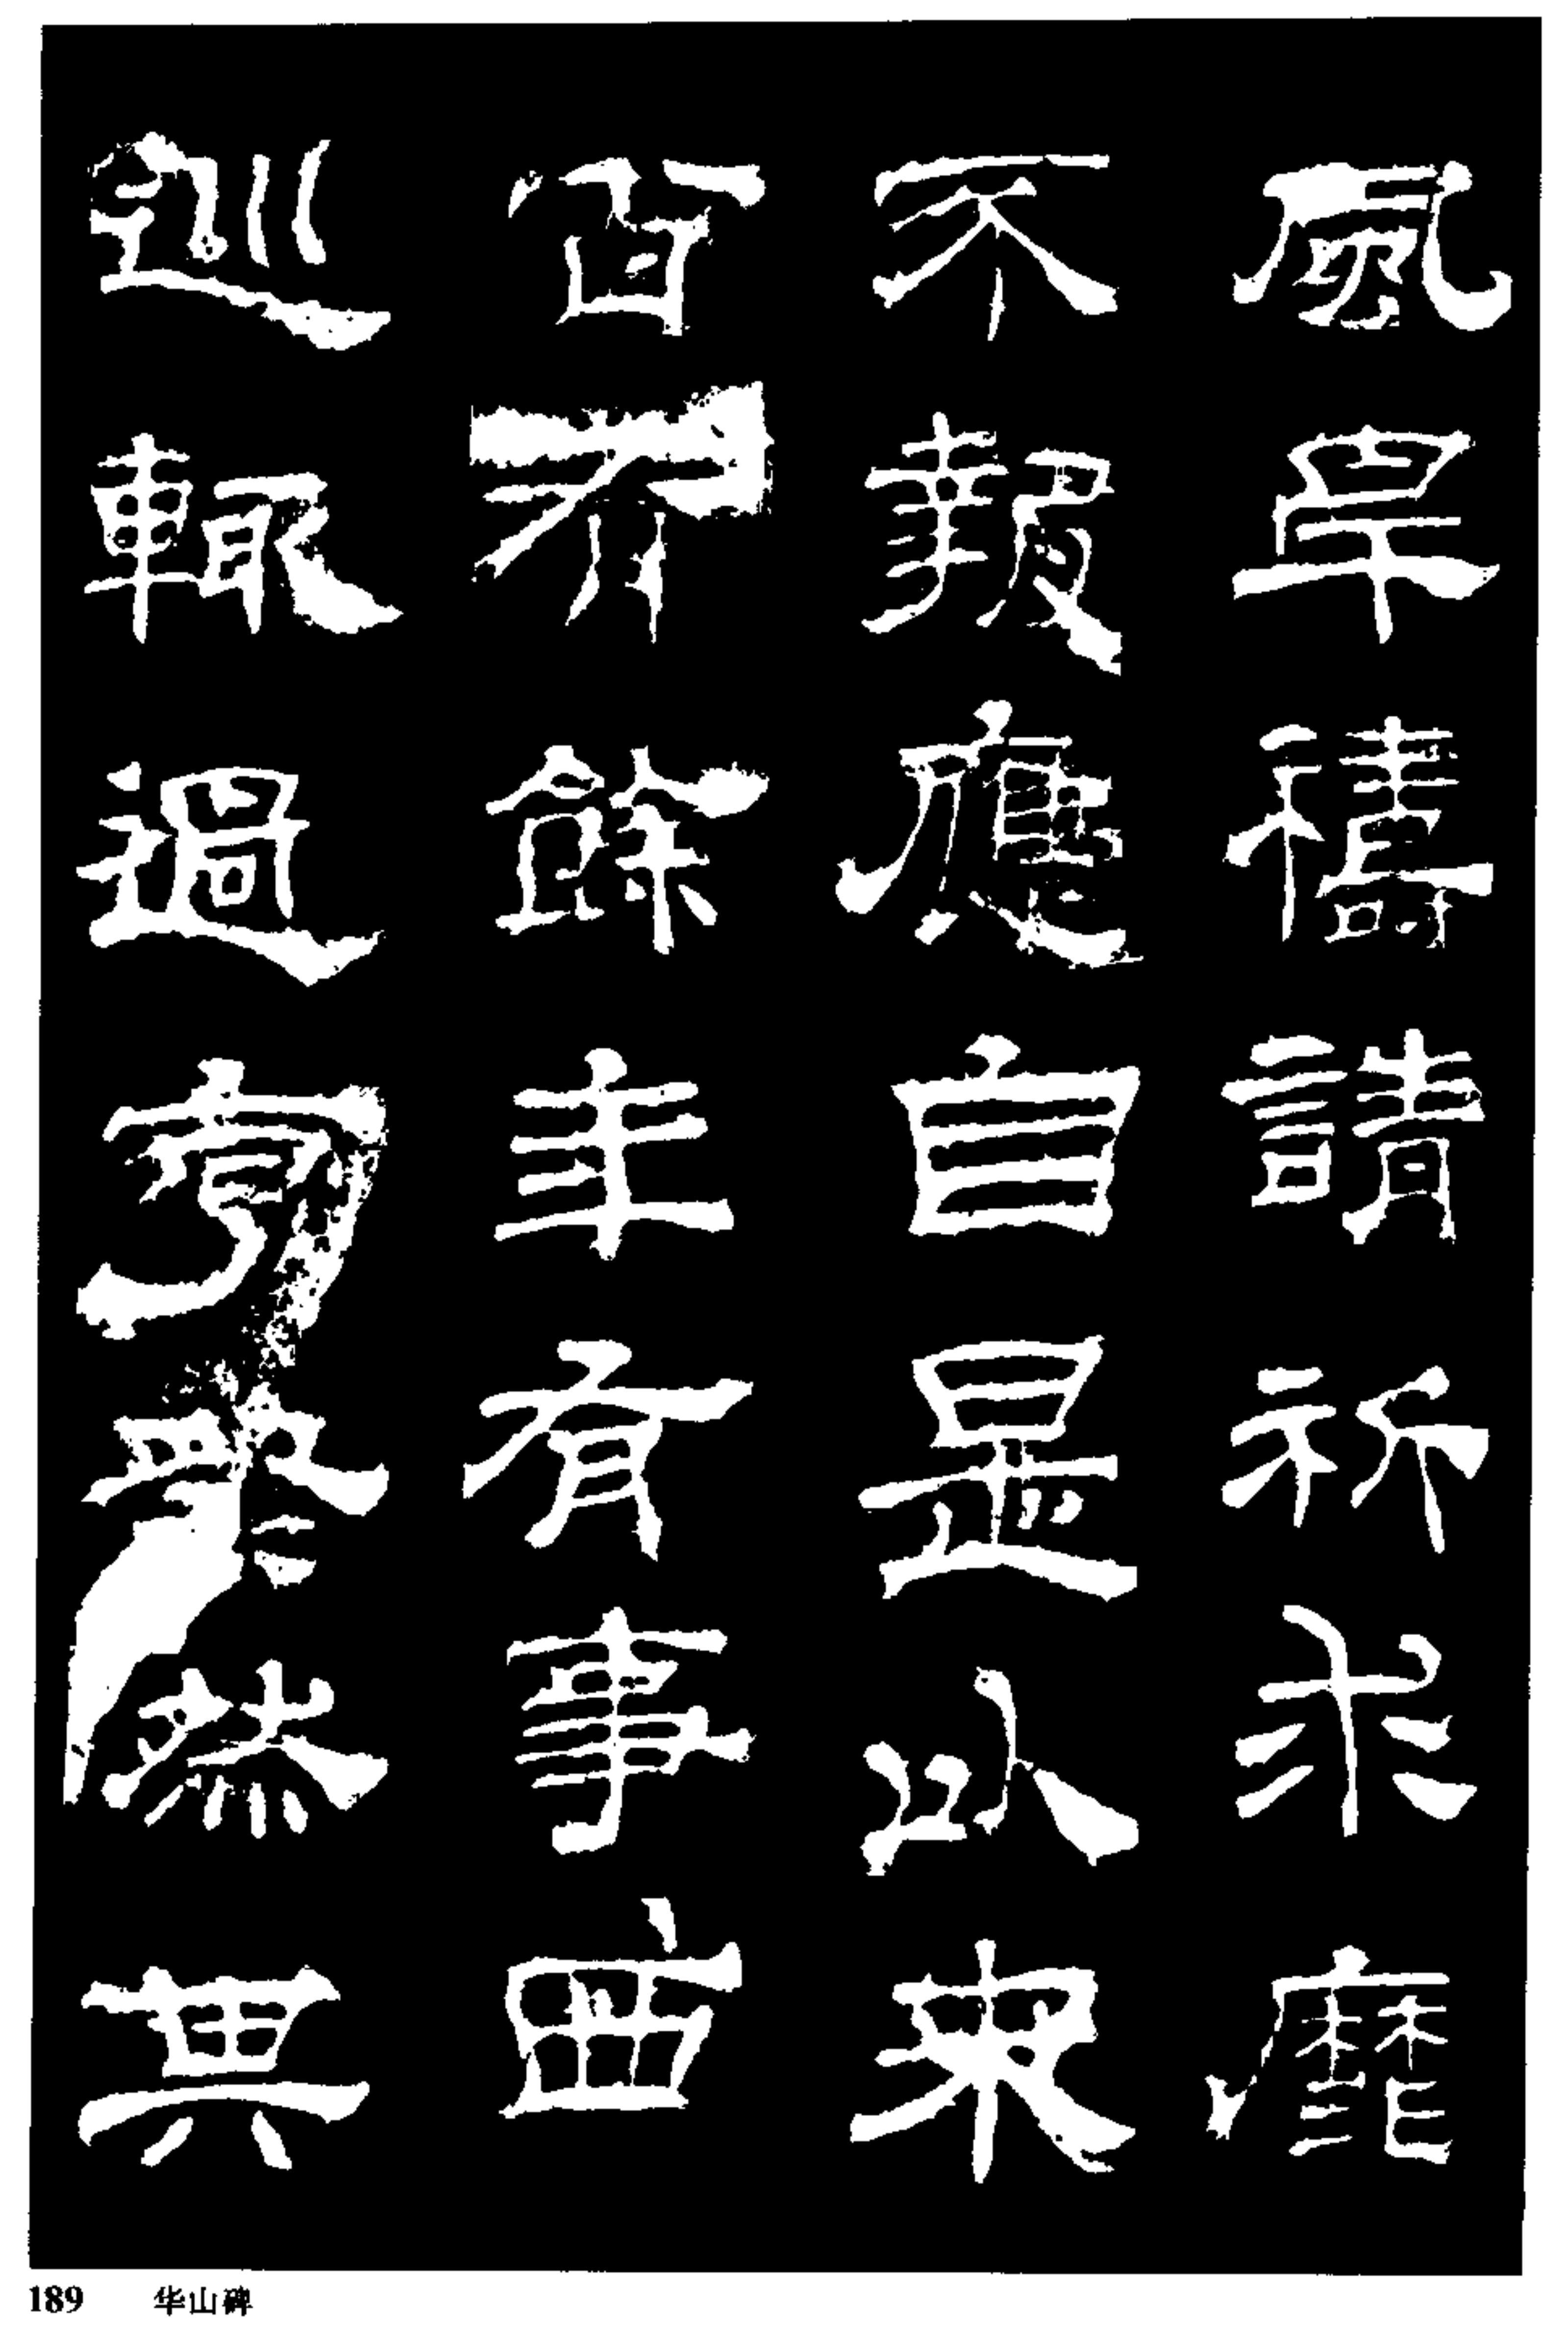 風旱禱請祈求靡
不報應自是以來
百有餘年有事西
巡輒過享祭然其
189 华山碑